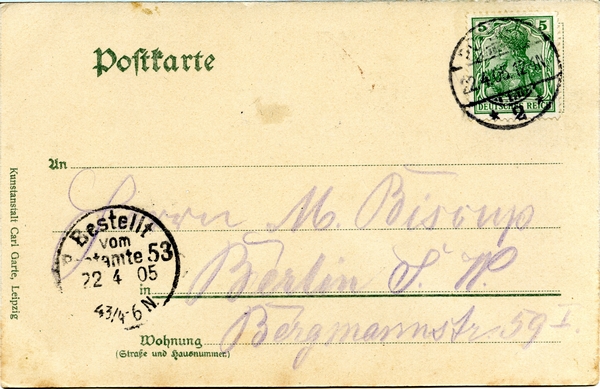 Postkarte
5 5
DEUTSCHES REICH
* 2
An
Herrn M. Biscup
Bestellt
vom
Postamte 53
22 4 05
4 3/4-6 N.
in Berlin S. W.
Bergmannstr 59 I.
Wohnung
(Straße und Hausnummer)
Kunstanstalt Carl Garte, Leipzig